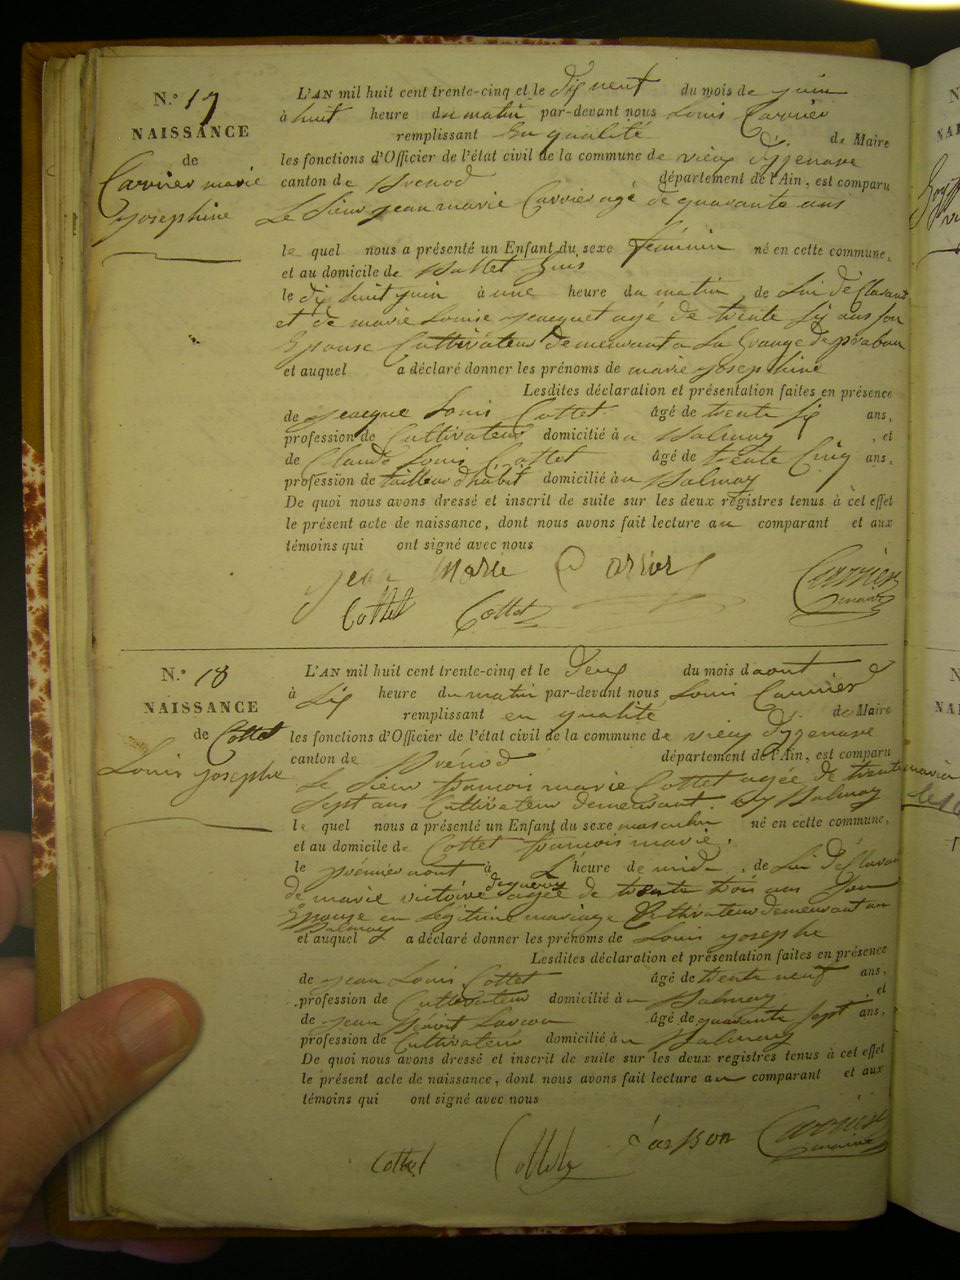 N.° 17
NAISSANCE
de
Carrier marie
Josephine
L'AN mil huit cent trente-cinq et le dix neuf du mois de juin
à huit heure du matin par-devant nous Louis Carrier
remplissant en qualité de Maire
les fonctions d'Officier de l'état civil de la commune de vieux d'yzenave
canton de Brenod département de l'Ain, est comparu
Le Sieur jean marie Carrier agé de quarante ans
le quel nous a présenté un Enfant du sexe féminin né en cette commune,
et au domicile de
le dix huit juin à une heure du matin, de Lui déclarant
et de marie Louise jacquet agé de trente six ans son
Epouse Cultivateur demeurant a La Grange de
et auquel a déclaré donner les prénoms de marie josephine
Lesdites déclaration et présentation faites en présence
de jeacque Louis Cottet âgé de trente six ans,
profession de Cultivateur domicilié à Balmay, et
de Claude Louis Cottet âgé de trente Cinq ans,
profession de tailleur d'habit domicilié à Balmay
De quoi nous avons dressé et inscrit de suite sur les deux registres tenus à cet effet
le présent acte de naissance, dont nous avons fait lecture au comparant et aux
témoins qui ont signé avec nous
jean marie Carrier Carrier
Cottet Cottet maire
N.° 18
NAISSANCE
de Cottet
Louis josephe
L'AN mil huit cent trente-cinq et le deux du mois d aout
à six heure du matin par-devant nous Louis Carrier
remplissant en qualité de Maire
les fonctions d'Officier de l'état civil de la commune de vieux d'yzenave
canton de Brénod département de l'Ain, est comparu
Le Sieur francois marie Cottet agée de trente
sept ans Cultivateur demeurant Balmay
le quel nous a présenté un Enfant du sexe masculin né en cette commune,
et au domicile de Cottet francois marie.
le prémier aout à heure de midi, de Lui déclarant
de marie victoire agée de trente trois ans Son
Epouse en légitime mariage Cultivateur demeurant au
Balmay
et auquel a déclaré donner les prénoms de Louis josephe
Lesdites déclaration et présentation faites en présence
de jean Louis Cottet âgé de trente neuf ans,
profession de Cultivateur domicilié à Balmay, et
de jean âgé de quarante sept ans,
profession de Cultivateur domicilié à Balmay
De quoi nous avons dressé et inscrit de suite sur les deux registres tenus à cet effet
le présent acte de naissance, dont nous avons fait lecture au comparant et aux
témoins qui ont signé avec nous
Cottet Carrier
maire